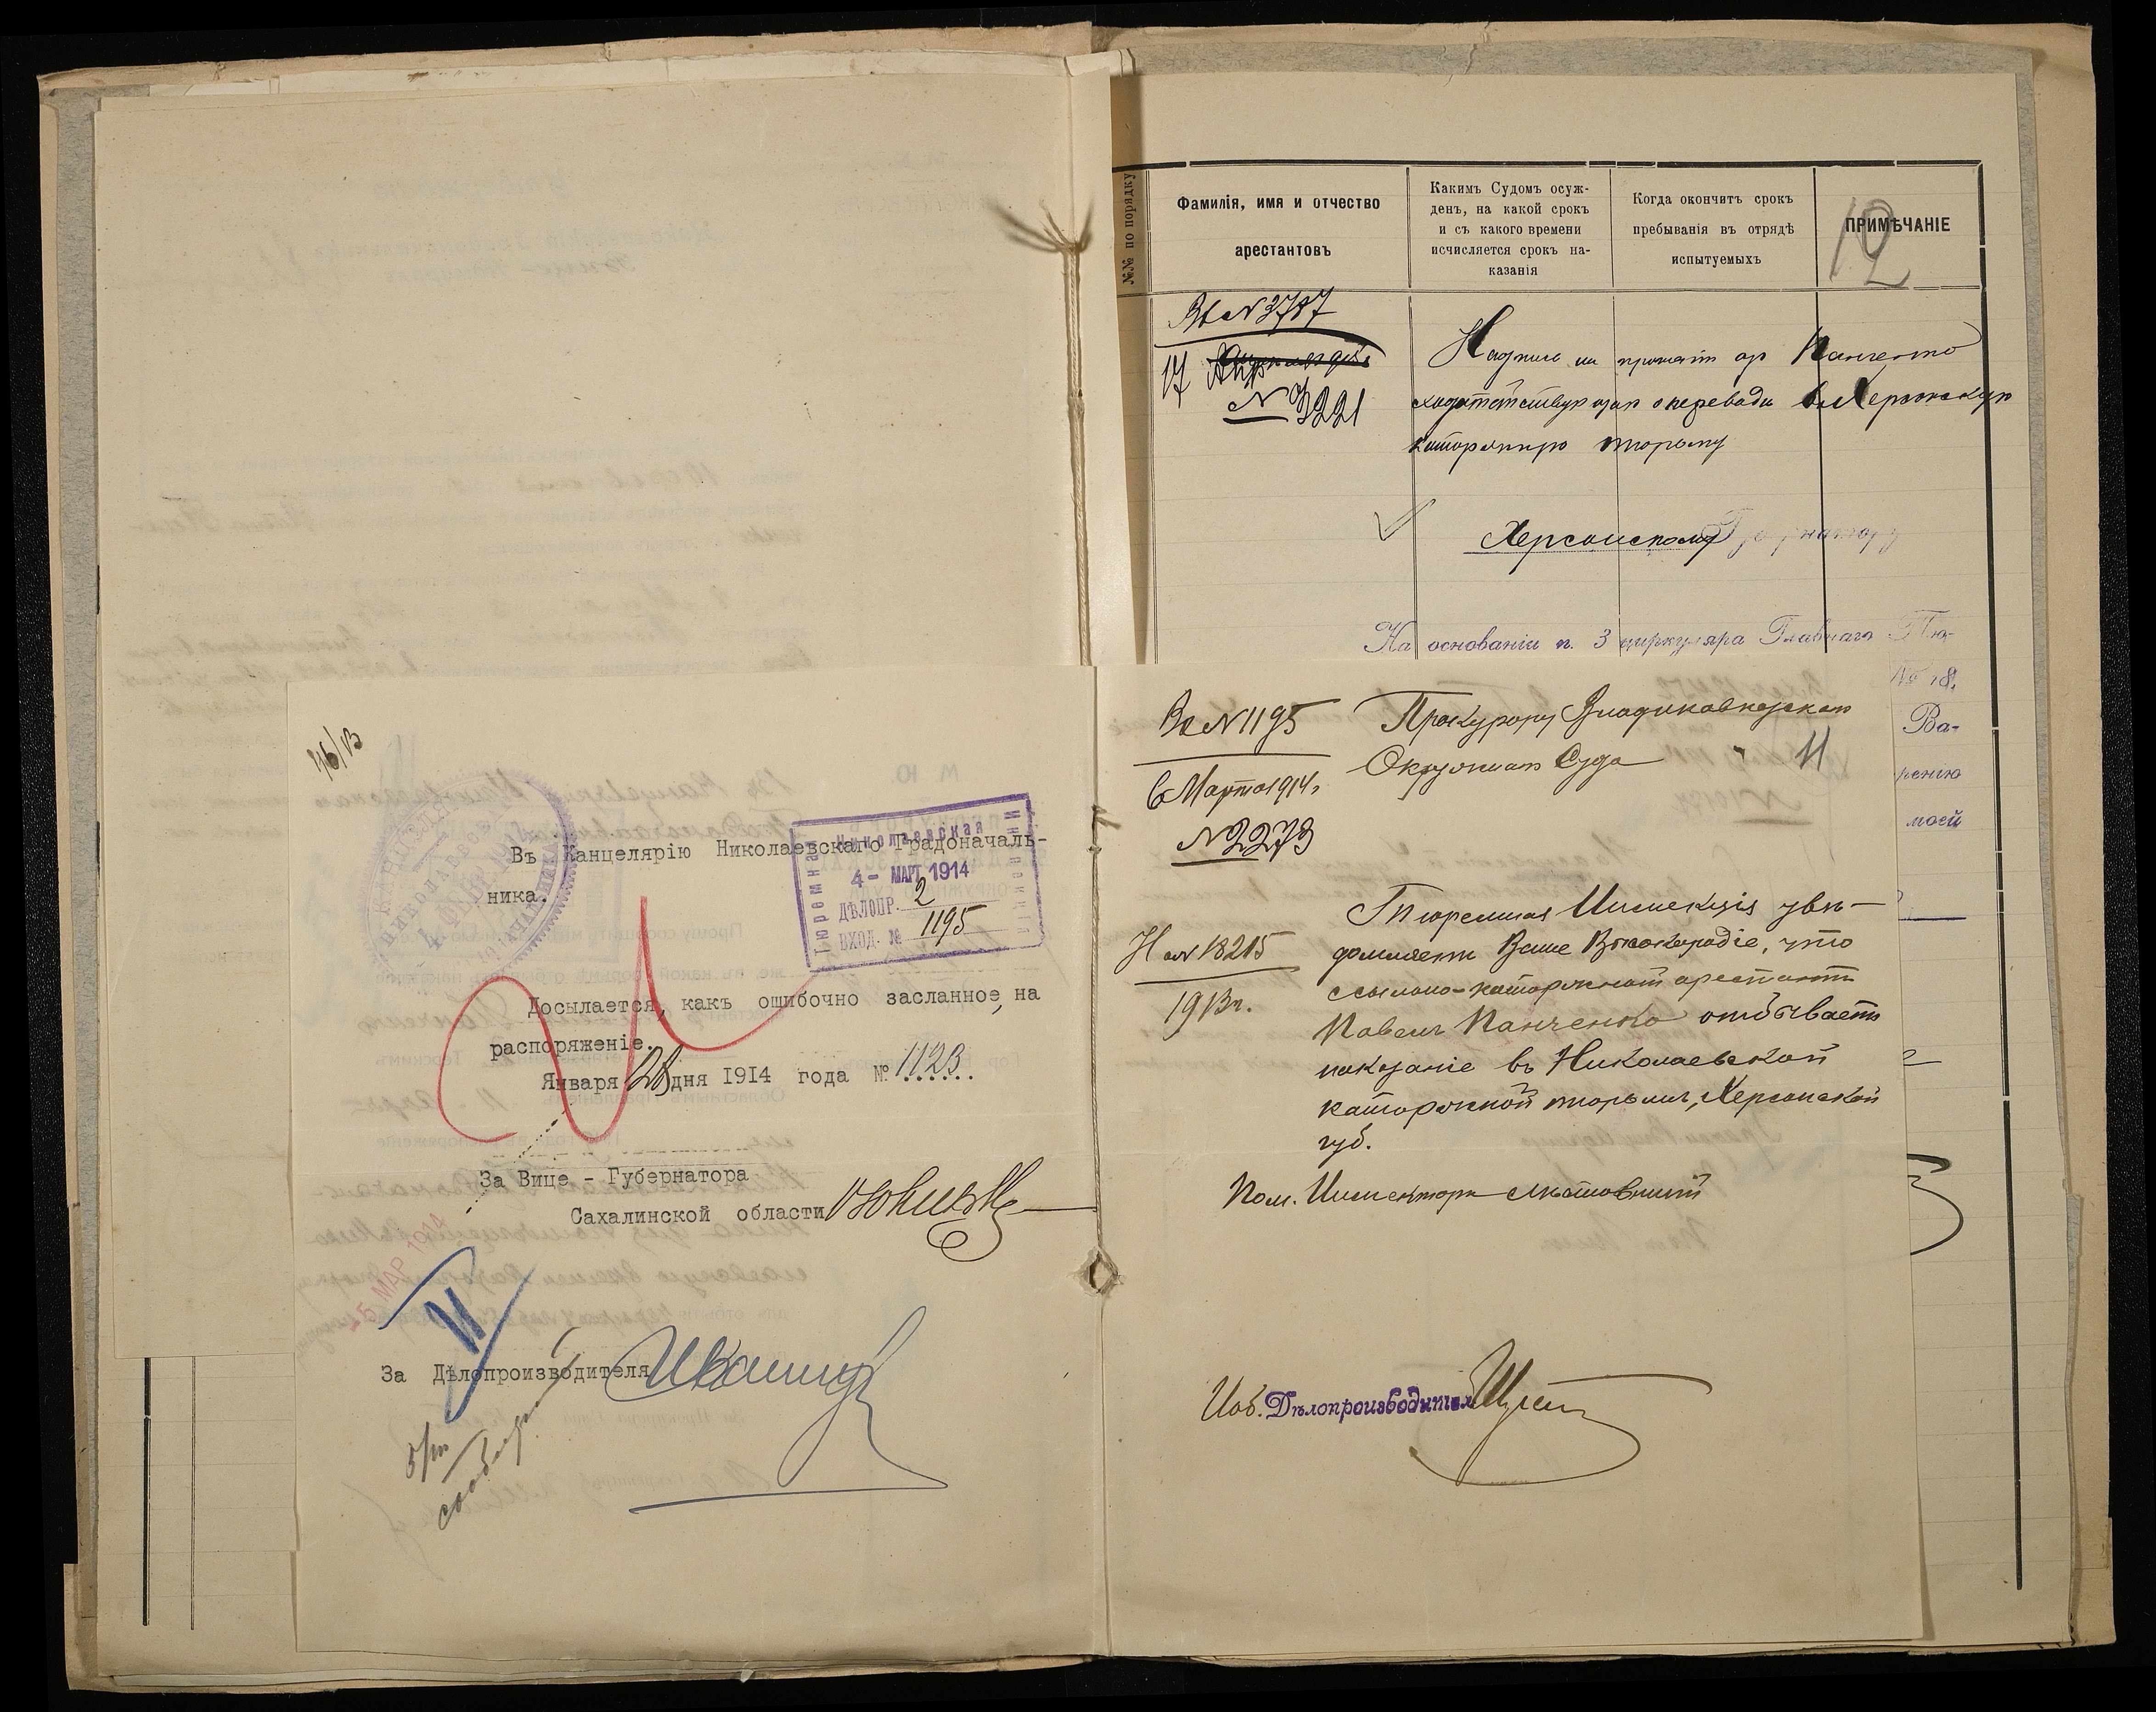 46/В
Николаевская
Тюремная
4 - МАРТ 1914
ДѢЛОПР. 2
ВХОД. № 1195
Въ Канцелярію Николаевскаго Градоначаль-
ника.
Досылается, какъ ошибочно засланное, на
распоряженіе.
Января 28 дня 1914 года № 1123
За Вице - Губернатора
Сахалинской области
5 МАР 1914
За Дѣлопроизводителя
№№ по порядку
Фамилія, имя и отчество
арестантовъ
Какимъ Судомъ осуж-
денъ, на какой срокъ
и съ какого времени
исчисляется срокъ на-
казанія
Когда окончитъ срокъ
пребыванія въ отрядѣ
испытуемыхъ
ПРИМѢЧАНІЕ
12
Вх N 3787
17
N 3221
Надпись на ар Панченко
о переводѣ въ Херсонскую
каторжную тюрьму
Херсонскому Губернатору
На основаніи п. 3 циркуляра Главнаго Тю-
№ 18,
Ва-
ренію
моей
Вх N 1195
6 Марта 1914 г.
N 2273
Прокурору Владикавказскаго
Окружнаго Суда
11
На N 18215
1913 г.
Тюремная Инспекція увѣ-
домляетъ Ваше Высокородіе, что
ссыльно-каторжный арестантъ
Павелъ Панченко отбываетъ
наказаніе въ Николаевской
каторжной тюрьмѣ, Херсонской
губ.
Пом. Инспектора
Исп. Дѣлопроизводителя